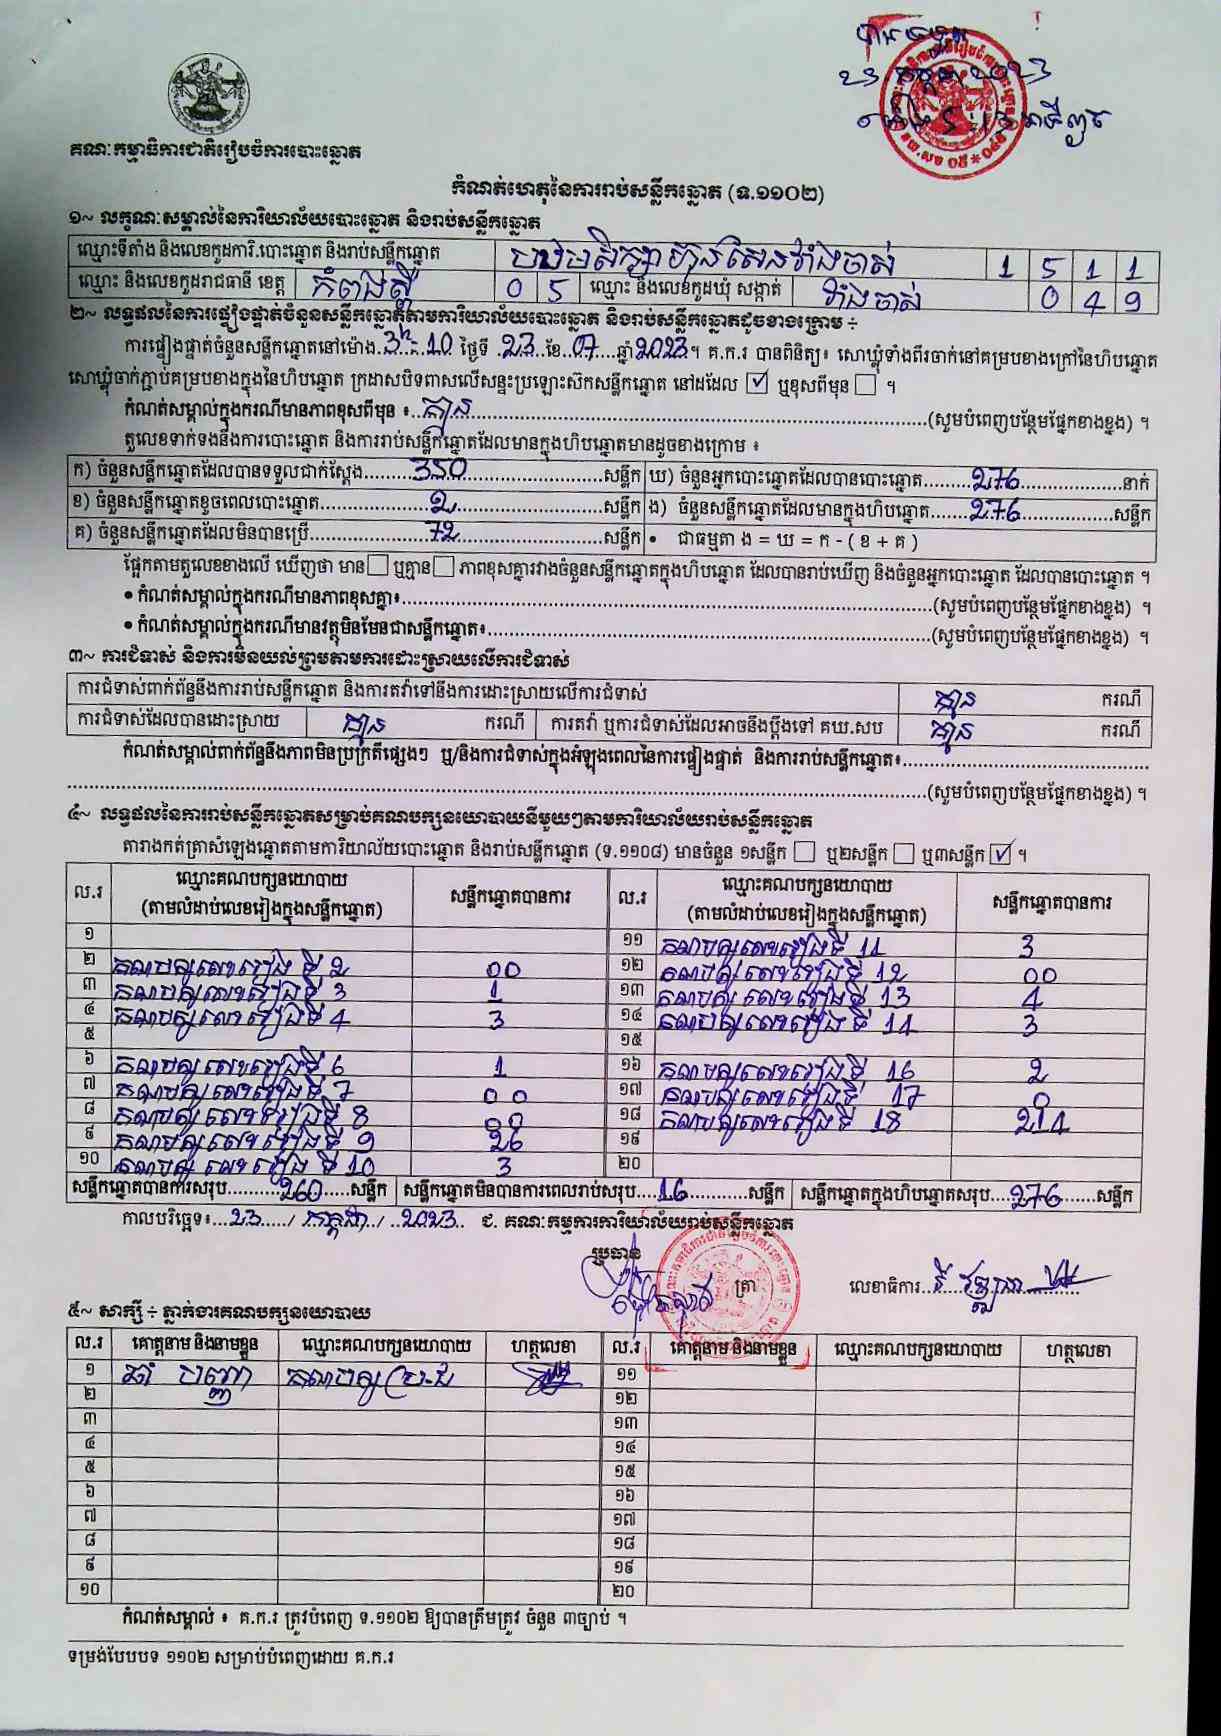 បានឃើញ
23 កក្កដា 2023
គណៈកម្មាធិការជាតិរៀបចំការបោះឆ្នោត
កំណត់ហេតុនៃការរាប់សន្លឹកឆ្នោត (ទ.១១០២)
១~ លក្ខណៈសម្គាល់នៃការិយាល័យបោះឆ្នោត និងរាប់សន្លឹកឆ្នោត
ឈ្មោះទីតាំង និងលេខកូដការិ.បោះឆ្នោត និងរាប់សន្លឹកឆ្នោត បឋមសិក្សា ហ៊ុន សែន វាំងចាស់ 1 5 1 1
ឈ្មោះ និងលេខកូដរាជធានី ខេត្ត កំពង់ស្ពឺ 0 5 ឈ្មោះ និងលេខកូដឃុំ សង្កាត់ វាំងចាស់ 0 4 9
២~ លទ្ធផលនៃការផ្ទៀងផ្ទាត់ចំនួនសន្លឹកឆ្នោតតាមការិយាល័យបោះឆ្នោត និងរាប់សន្លឹកឆ្នោតដូចខាងក្រោម ÷
ការផ្ទៀងផ្ទាត់ចំនួនសន្លឹកឆ្នោតនៅម៉ោង..3h:10 ថ្ងៃទី .23..ខែ..07....ឆ្នាំ 2023។ គ.ក.រ បានពិនិត្យ៖ សោឃ្លុំទាំងពីរចាក់នៅគម្របខាងក្រៅនៃហិបឆ្នោត
សោឃ្លុំចាក់ភ្ជាប់គម្របខាងក្នុងនៃហិបឆ្នោត ក្រដាសបិទពាសលើសន្ទះប្រឡោះស៊កសន្លឹកឆ្នោត នៅដដែល ☑ ឬខុសពីមុន ☐ ។
កំណត់សម្គាល់ក្នុងករណីមានភាពខុសពីមុន ៖..គ្មាន..........(សូមបំពេញបន្ថែមផ្នែកខាងខ្នង) ។
តួលេខទាក់ទងនឹងការបោះឆ្នោត និងការរាប់សន្លឹកឆ្នោតដែលមានក្នុងហិបឆ្នោតមានដូចខាងក្រោម ៖
ក) ចំនួនសន្លឹកឆ្នោតដែលបានទទួលជាក់ស្តែង........350........សន្លឹក ឃ) ចំនួនអ្នកបោះឆ្នោតដែលបានបោះឆ្នោត........276........នាក់
ខ) ចំនួនសន្លឹកឆ្នោតខូចពេលបោះឆ្នោត........2........សន្លឹក ង) ចំនួនសន្លឹកឆ្នោតដែលមានក្នុងហិបឆ្នោត........276........សន្លឹក
គ) ចំនួនសន្លឹកឆ្នោតដែលមិនបានប្រើ........72........សន្លឹក • ជាធម្មតា ង = ឃ = ក - ( ខ + គ )
ផ្អែកតាមតួលេខខាងលើ ឃើញថា មាន☐ ឬគ្មាន☐ ភាពខុសគ្នារវាងចំនួនសន្លឹកឆ្នោតក្នុងហិបឆ្នោត ដែលបានរាប់ឃើញ និងចំនួនអ្នកបោះឆ្នោត ដែលបានបោះឆ្នោត ។
• កំណត់សម្គាល់ក្នុងករណីមានភាពខុសគ្នា៖..........(សូមបំពេញបន្ថែមផ្នែកខាងខ្នង) ។
• កំណត់សម្គាល់ក្នុងករណីមានវត្ថុមិនមែនជាសន្លឹកឆ្នោត៖..........(សូមបំពេញបន្ថែមផ្នែកខាងខ្នង) ។
៣~ ការជំទាស់ និងការមិនយល់ព្រមតាមការដោះស្រាយលើការជំទាស់
ការជំទាស់ពាក់ព័ន្ធនឹងការរាប់សន្លឹកឆ្នោត និងការតវ៉ាទៅនឹងការដោះស្រាយលើការជំទាស់ គ្មាន ករណី
ការជំទាស់ដែលបានដោះស្រាយ គ្មាន ករណី ការតវ៉ា ឬការជំទាស់ដែលអាចនឹងប្តឹងទៅ គឃ.សប គ្មាន ករណី
កំណត់សម្គាល់ពាក់ព័ន្ធនឹងភាពមិនប្រក្រតីផ្សេងៗ ឬ/និងការជំទាស់ក្នុងអំឡុងពេលនៃការផ្ទៀងផ្ទាត់ និងការរាប់សន្លឹកឆ្នោត៖..........
..........(សូមបំពេញបន្ថែមផ្នែកខាងខ្នង) ។
៤~ លទ្ធផលនៃការរាប់សន្លឹកឆ្នោតសម្រាប់គណបក្សនយោបាយនីមួយៗតាមការិយាល័យរាប់សន្លឹកឆ្នោត
តារាងកត់ត្រាសំឡេងឆ្នោតតាមការិយាល័យបោះឆ្នោត និងរាប់សន្លឹកឆ្នោត (ទ.១១០៨) មានចំនួន ១សន្លឹក ☐ ឬ២សន្លឹក ☐ ឬ៣សន្លឹក ☑ ។
ល.រ ឈ្មោះគណបក្សនយោបាយ (តាមលំដាប់លេខរៀងក្នុងសន្លឹកឆ្នោត) សន្លឹកឆ្នោតបានការ ល.រ ឈ្មោះគណបក្សនយោបាយ (តាមលំដាប់លេខរៀងក្នុងសន្លឹកឆ្នោត) សន្លឹកឆ្នោតបានការ
១ ១១ គណបក្សលេខរៀងទី 11 3
២ គណបក្សលេខរៀងទី 2 00 ១២ គណបក្សលេខរៀងទី 12 00
៣ គណបក្សលេខរៀងទី 3 1 ១៣ គណបក្សលេខរៀងទី 13 4
៤ គណបក្សលេខរៀងទី 4 3 ១៤ គណបក្សលេខរៀងទី 14 3
៥ ១៥
៦ គណបក្សលេខរៀងទី 6 1 ១៦ គណបក្សលេខរៀងទី 16 2
៧ គណបក្សលេខរៀងទី 7 00 ១៧ គណបក្សលេខរៀងទី 17 0
៨ គណបក្សលេខរៀងទី 8 00 ១៨ គណបក្សលេខរៀងទី 18 214
៩ គណបក្សលេខរៀងទី 9 26 ១៩
១០ គណបក្សលេខរៀងទី 10 3 ២០
សន្លឹកឆ្នោតបានការសរុប........260......សន្លឹក សន្លឹកឆ្នោតមិនបានការពេលរាប់សរុប....16........សន្លឹក សន្លឹកឆ្នោតក្នុងហិបឆ្នោតសរុប....276......សន្លឹក
កាលបរិច្ឆេទ៖...23...../ កក្កដា / ..2023.. ជ. គណៈកម្មការការិយាល័យរាប់សន្លឹកឆ្នោត
ប្រធាន
ត្រា
លេខាធិការ
៥~ សាក្សី ÷ ភ្នាក់ងារគណបក្សនយោបាយ
ល.រ គោត្តនាម និងនាមខ្លួន ឈ្មោះគណបក្សនយោបាយ ហត្ថលេខា ល.រ គោត្តនាម និងនាមខ្លួន ឈ្មោះគណបក្សនយោបាយ ហត្ថលេខា
១ បញ្ញា គណបក្ស ប្រ.ជ ១១
២ ១២
៣ ១៣
៤ ១៤
៥ ១៥
៦ ១៦
៧ ១៧
៨ ១៨
៩ ១៩
១០ ២០
កំណត់សម្គាល់ ៖ គ.ក.រ ត្រូវបំពេញ ទ.១១០២ ឱ្យបានត្រឹមត្រូវ ចំនួន ៣ច្បាប់ ។
ទម្រង់បែបបទ ១១០២ សម្រាប់បំពេញដោយ គ.ក.រ